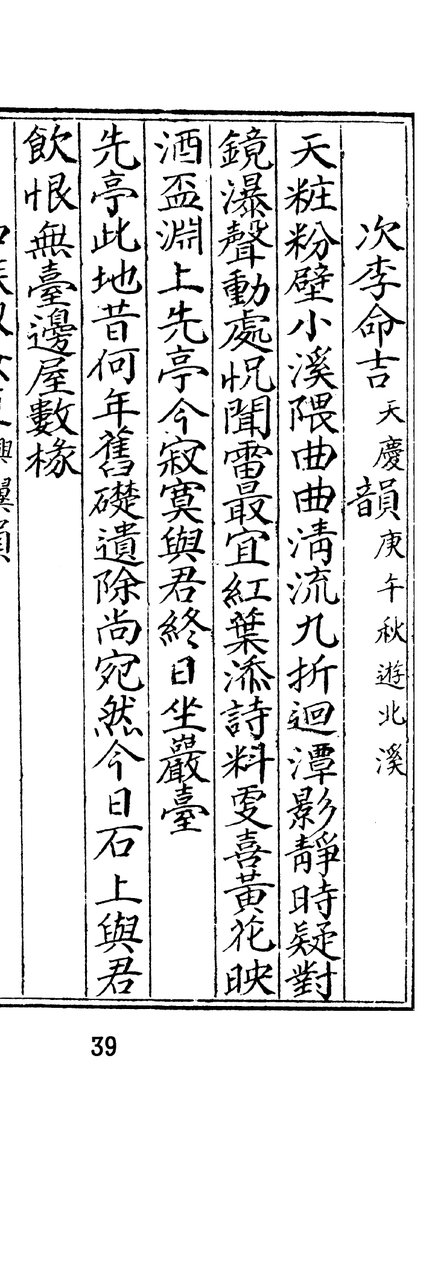 次李命吉天慶韻庚午秋遊北溪
天粧粉壁小溪隈曲曲淸流九折迴潭影靜時疑對
鏡瀑聲動處怳聞雷最宜紅葉添詩料更喜黃花映
酒盃淵上先亭今寂寞與君終日坐巖臺
先亭此地昔何年舊礎遺除尚宛然今日石上與君
飮恨無臺邊屋數椽
39